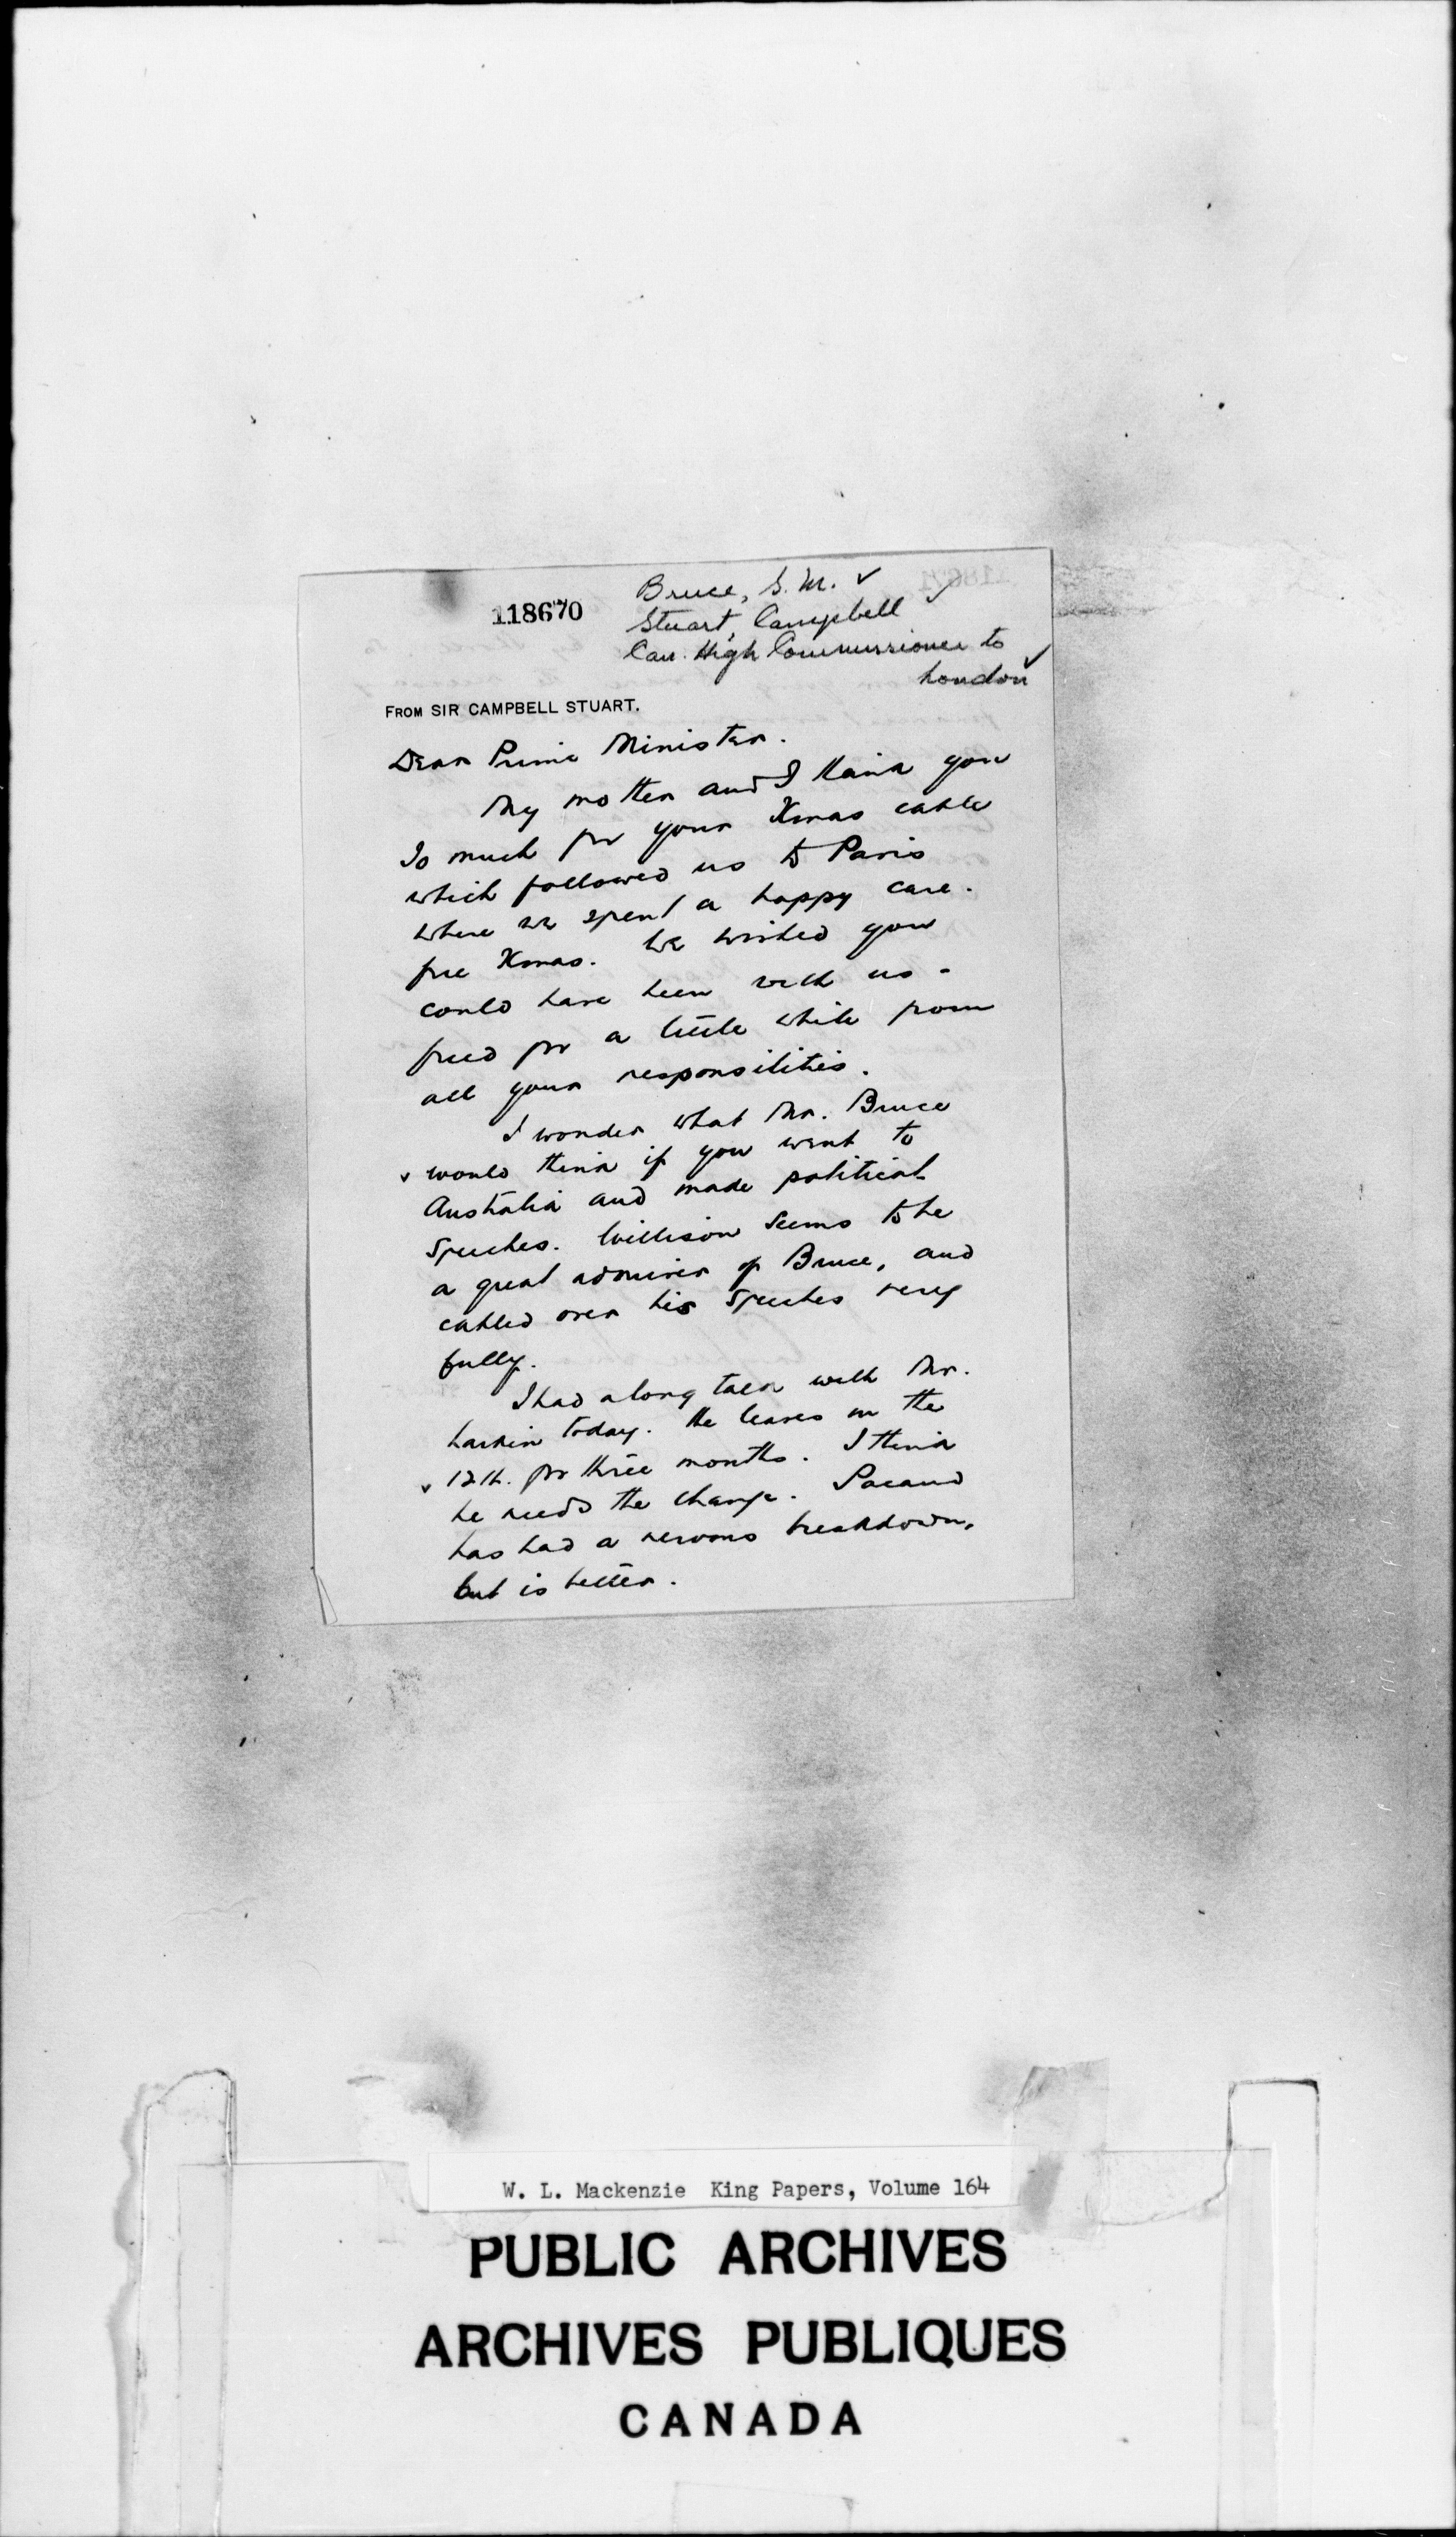 118670
Bruce, S. M. ✓
Stuart, Campbell ✓
Can. High Commissioner to
London ✓
FROM SIR CAMPBELL STUART.
Dear Prime Minister.
My mother and I thank you
so much for your Xmas cable
which followed us to Paris
where we spent a happy care-
free Xmas. We wished you
could have been with us -
freed for a little while from
all your responsilities.
I wonder what Mr. Bruce
would think if you went to
Australia and made political
speeches. Willison seems to be
a great admirer of Bruce, and
cabled over his speeches very
fully.
I had a long talk with Mr.
Larkin today. He leaves on the
12th. for three months. I think
he needs the change. Pacaud
has had a nervous breakdown,
but is better.
W. L. Mackenzie King Papers, Volume 164
PUBLIC ARCHIVES
ARCHIVES PUBLIQUES
CANADA